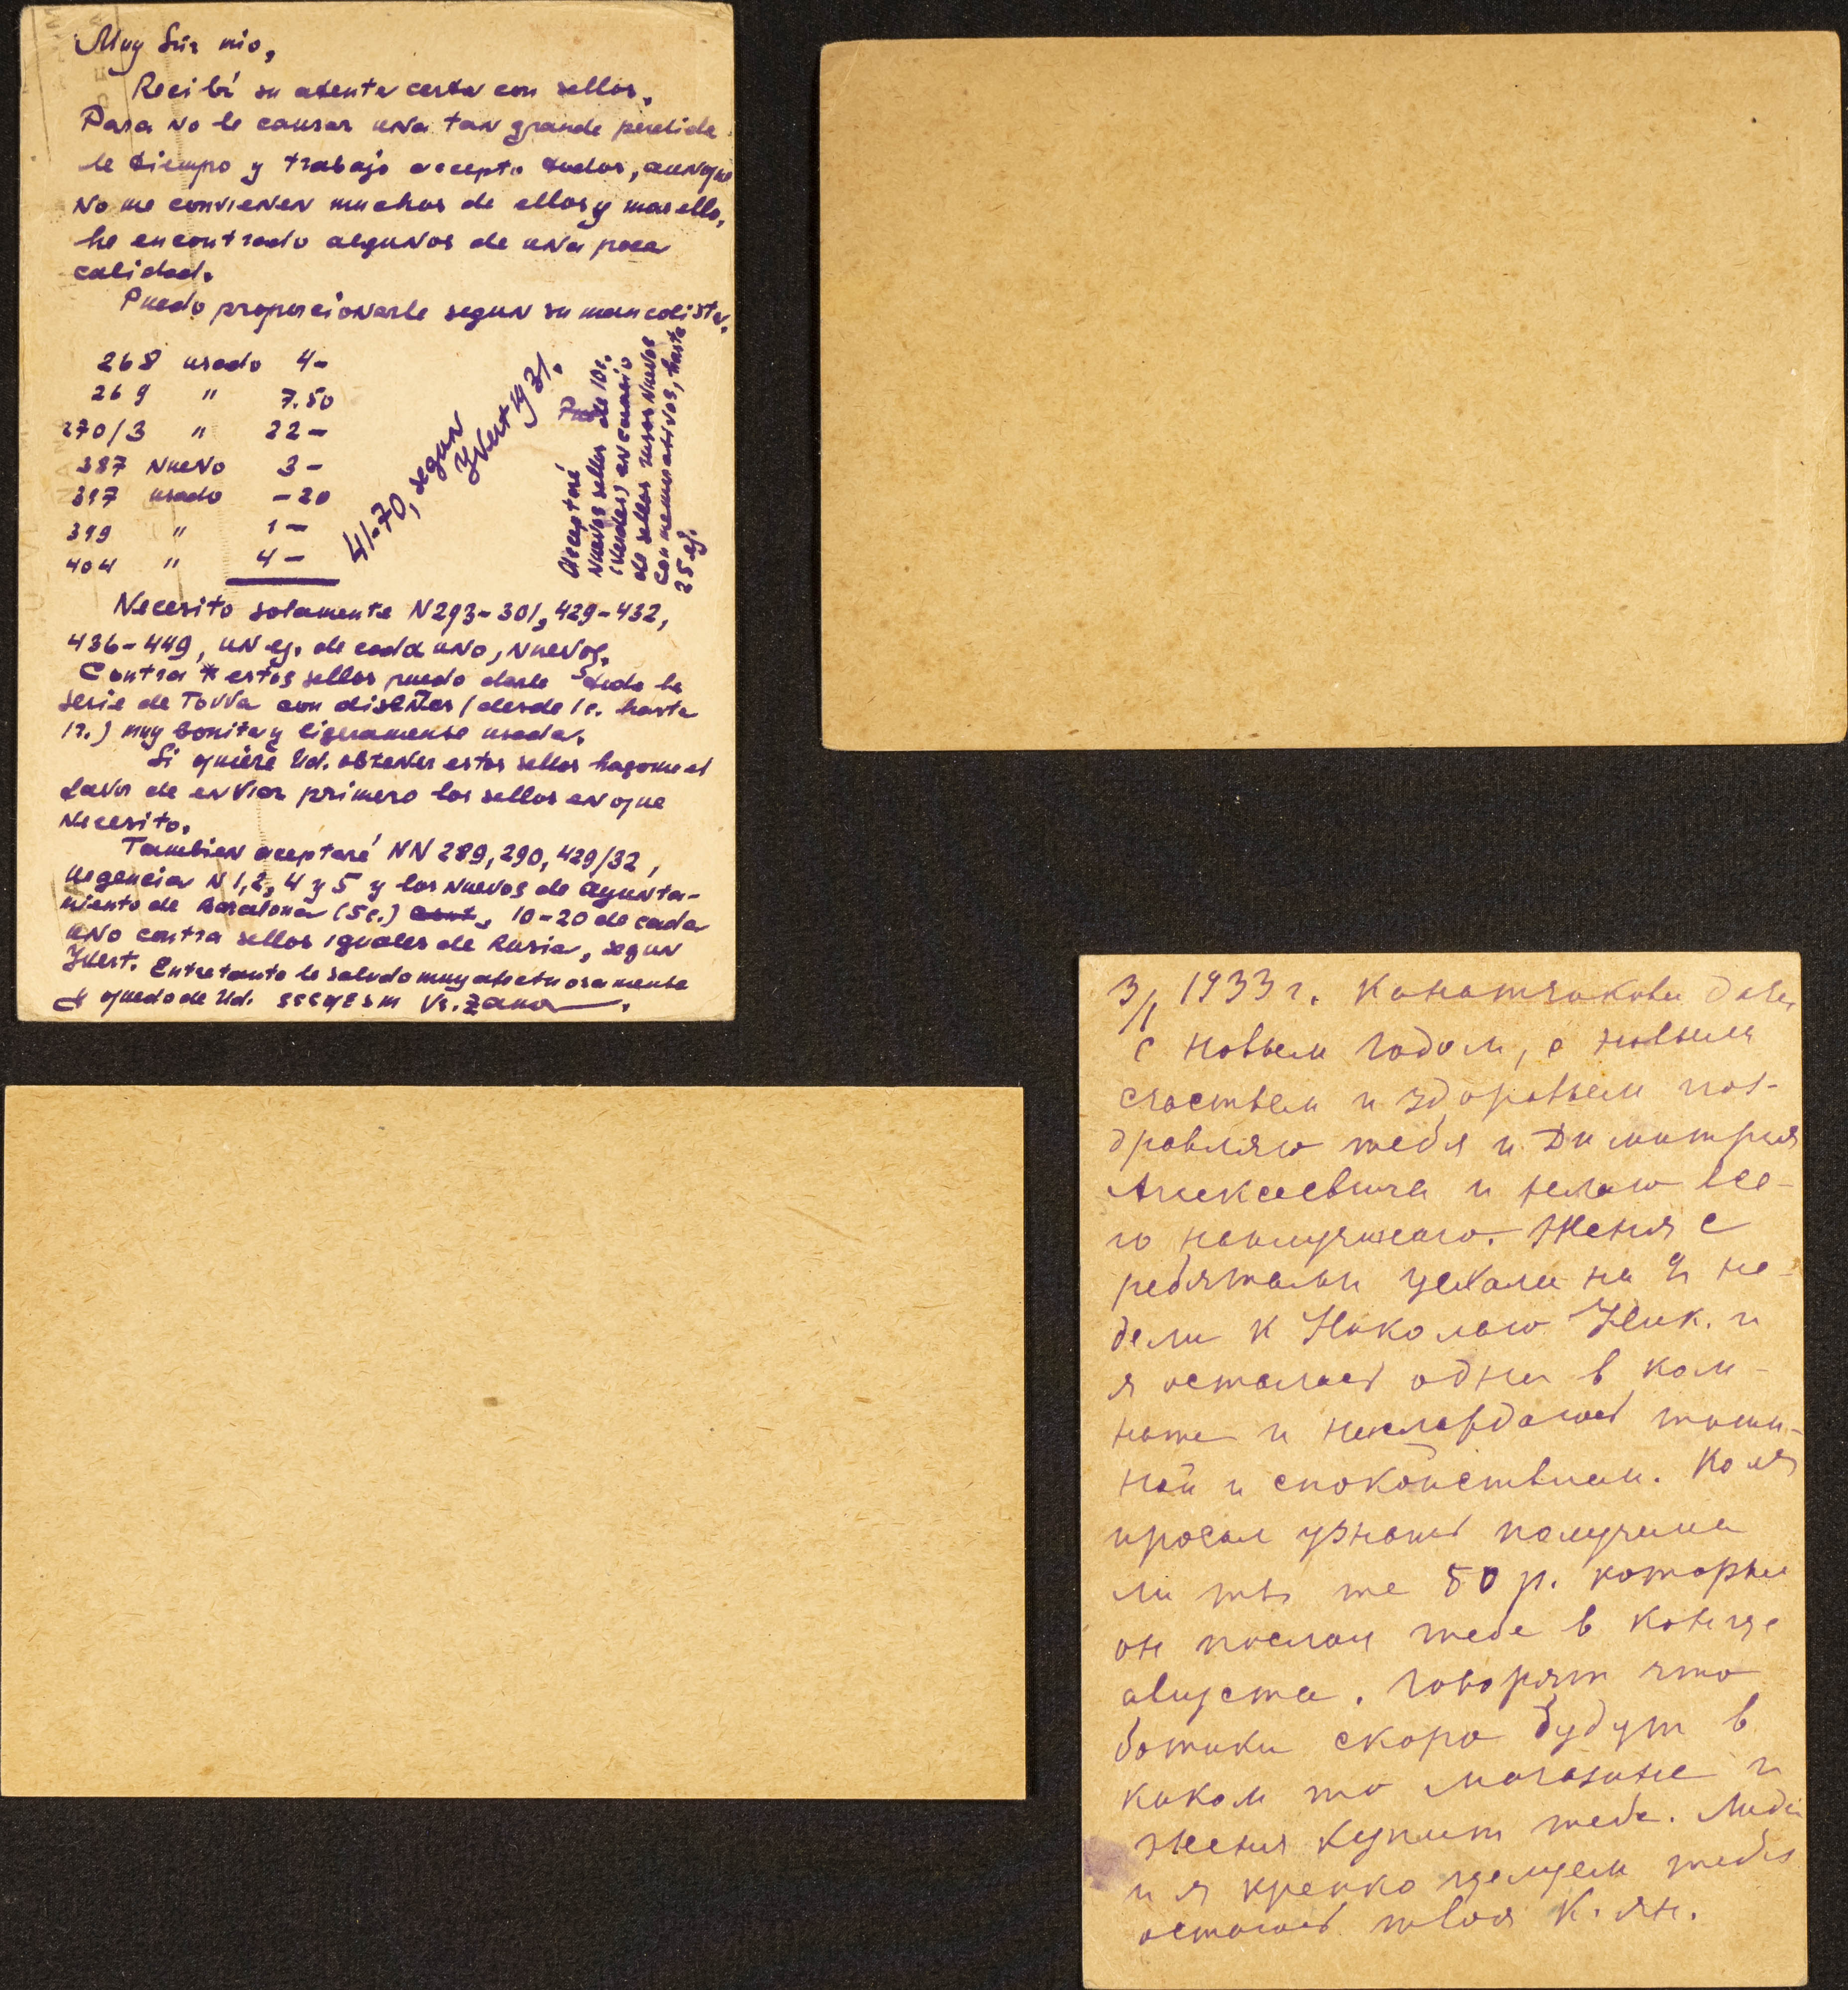 Muy Snr mio,
Recibí su atenta carta con sellos.
Para no le causar una tan grande perdida
de tiempo y trabajo accepto todos, aunque
no me convienen muchos de ellos y mas ello,
he encontrado algunos de una poca
calidad.
Puedo proporcionarle segun su mancolista.
268 usado 4-
269 " 7.50
270/3 " 22-
387 nuevo 3-
397 usado -20
399 " 1-
404 " 4-
41-70, segun
Yvert 1931.
Acceptaré
nuevos sellos de 10c.
(verdes) en cambio
de sellos rusos nuevos
conmemorativos, hasta
25 ej.
Necesito solamente N 293-301, 429-432,
436-449, un ej. de cada uno, nuevos.
Contra * estos sellos puedo darle toda la
serie de Touva con diseños (desde 1c. hasta
1r.) muy bonita y ligeramente usada.
Si quiere Ud. obtener estos sellos hagome el
favor de enviar primero los sellos en que
necesito.
Tambien aceptaré NN 289, 290, 429/32,
urgencia N 1, 2, 4 y 5 y los nuevos de Ayunta-
miento de Barcelona (5c.) cont, 10-20 de cada
uno contra sellos iguales de Rusia, segun
Yvert. Entretanto le saludo muy afectuosamente
y quedo de Ud.
3/I 1933 г. Канатчикова дача
С новым годом, с новым
счастьем и здоровьем поз-
дравляю тебя и Димитрия
Алексеевича и желаю все-
го наилучшего. Женя с
ребятами уехали на 2 не-
дели к Николаю Ник. и
я осталась одна в ком-
нате и наслаждаюсь тиши-
ной и спокойствием. Коля
просил узнать получила
ли ты те 50 р. которые
он послал тебе в конце
августа. Говорят что
ботики скоро будут в
каком то магазине и
Женя купит тебе. Лида
и я крепко целуем тебя
остаюсь твоя К. Ян.